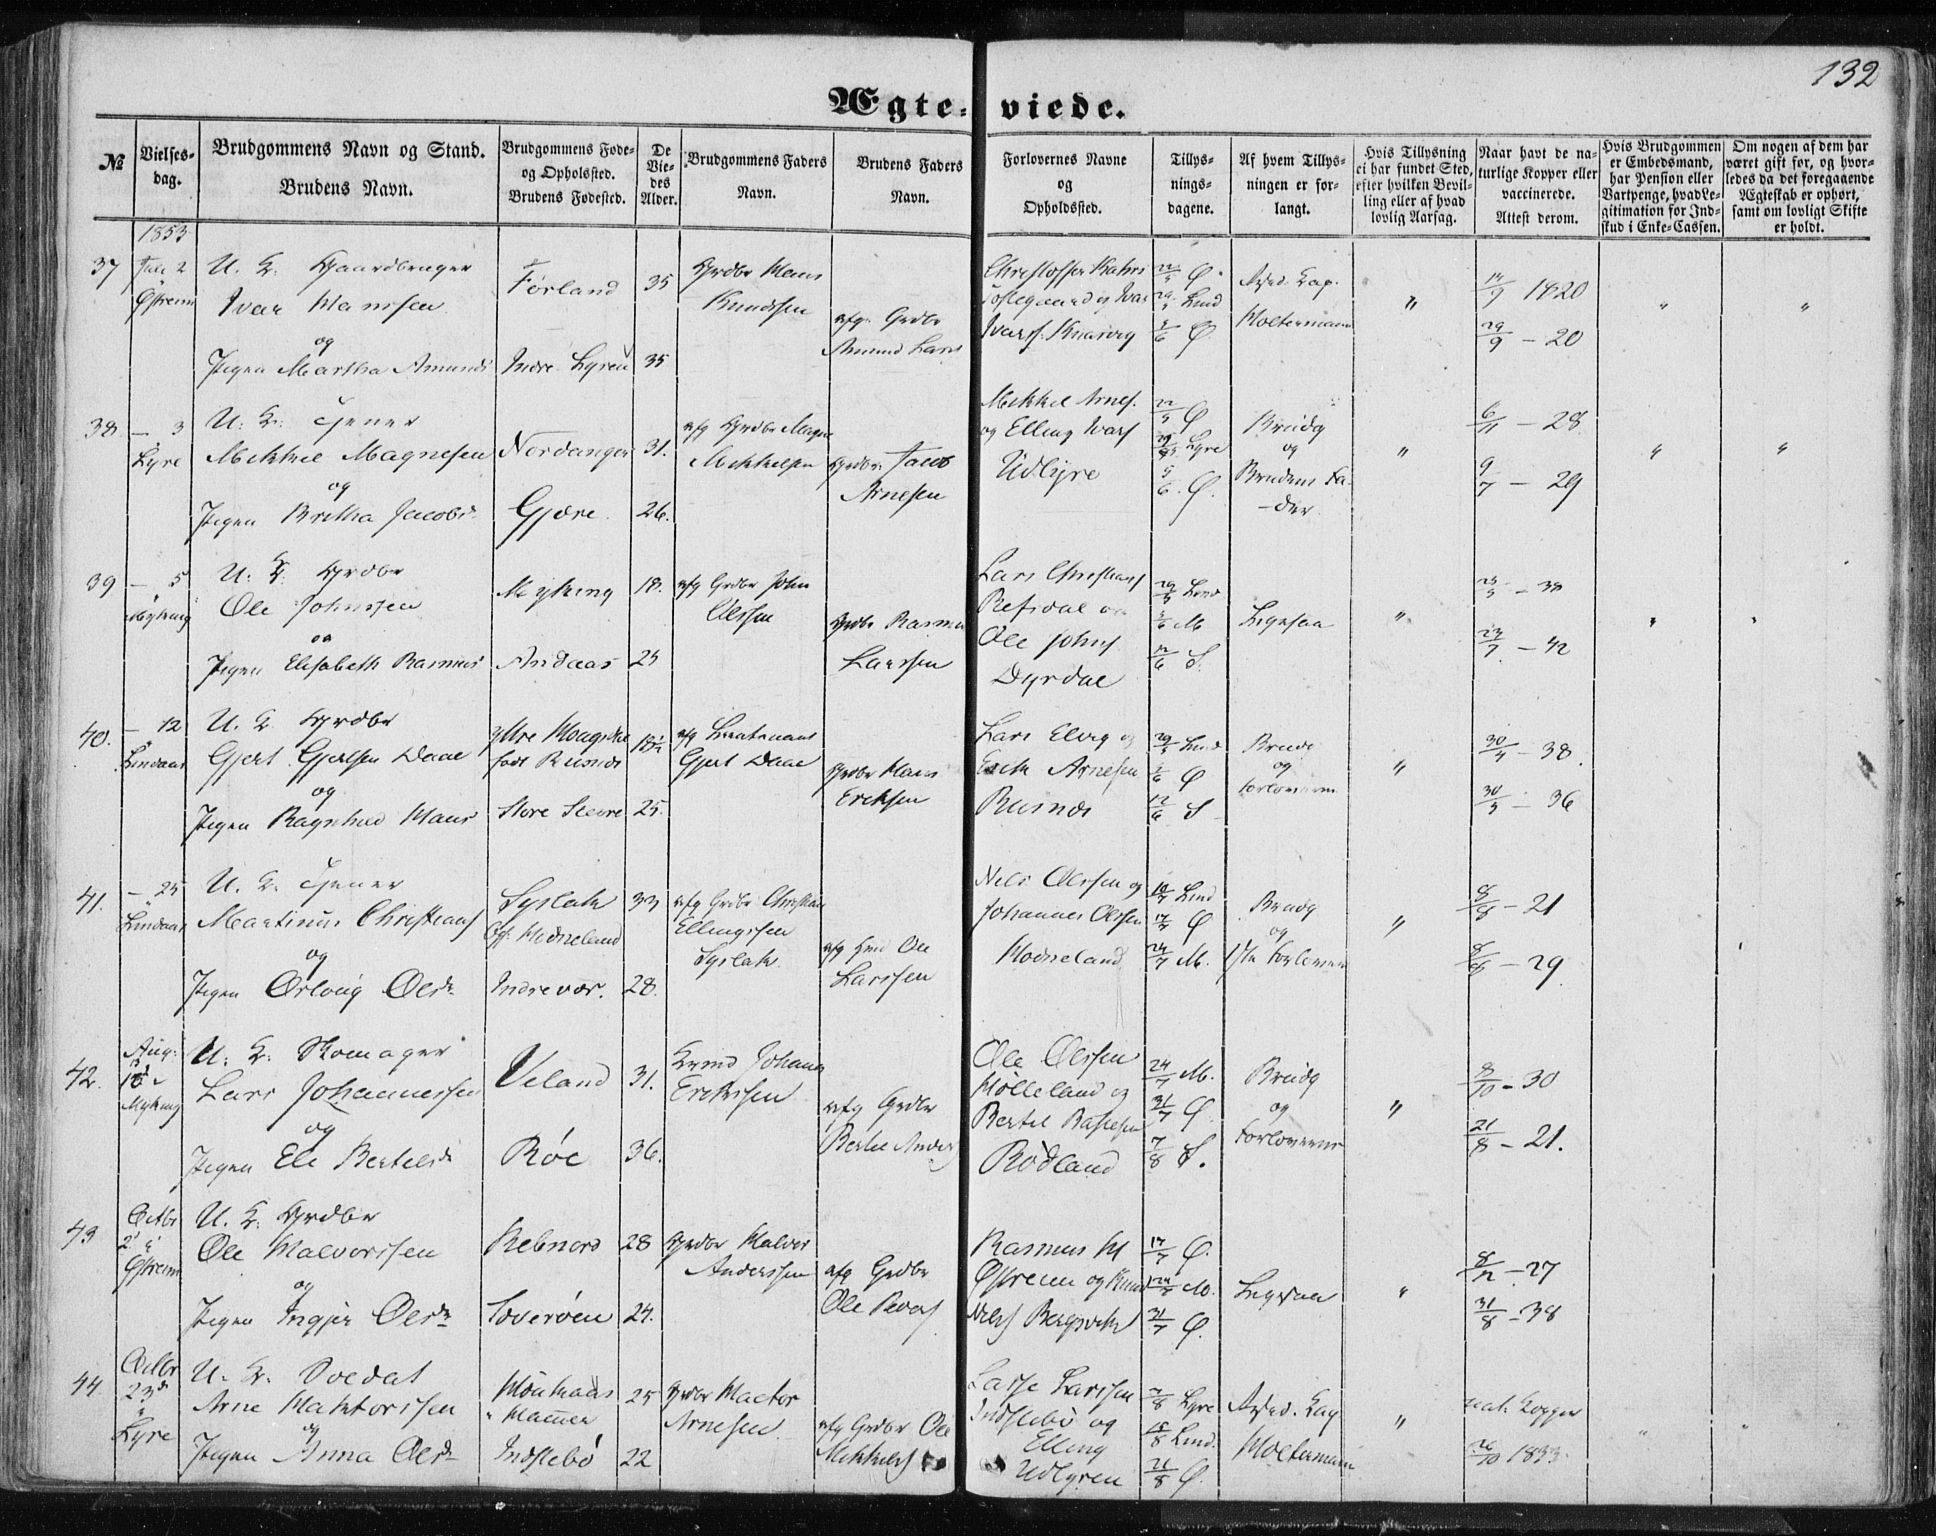 132
Ægte- viede.
№
Vielses-
dag.
Brudgommens Navn og Stand.
Brudens Navn.
Brudgommens Føde-
og Opholssted.
Brudens Fødested.
De
Vie-
des
Alder.
Brudgommens Faders
Navn.
Brudens Faders
Navn.
Forlovernes Navne
og
Opholdssted.
Tillys-
nings-
dagene.
Af hvem Tillys-
ningen er for-
langt.
Hvis Tillysning
ei har fundet Sted,
efter hvilken Bevil-
ling eller af hvad
lovlig Aarsag.
Naar havt de na-
turlige Kopper eller
vaccinerede.
Attest derom.
Hvis Brudgommen
er Embedsmand,
har Pension eller
Vartpenge, hvad Le-
gitimation for Ind-
skud i Enke-Cassen.
Om nogen af dem har
været gift før, og hvor-
ledes da det foregaaende
Ægteskab er ophørt,
samt om lovligt Skifte
er holdt.
1853
37
Juli 2
Østreim
U. K. Gaardbruger
Ivar Hanssen
og
Pigen Martha Amunds
Førland
Indre Lyren
35
35
Grdbr Hans
Knudssen
afg. Grdbr
Amund Lars
Christoffer Kahrs
Toftegaard og Ivar
Ivarss. Knarvig
22/5 Ø.
29/5 Lind
5/6 Ø
Resd. Cap.
Holtermann
"
14/9 1820
29/9 - 20
"
"
38
- 3
Lyre
U. K. Tjener
Mikkel Magnesen
og
Pigen Britha Jacobsd.
Nordanger
Gjære
31.
26.
afg Grdbr Magne
Mikkelsen
Grdbr. Jacob
Arnesen
Mikkel Arnes.
og Elling Ivars
Udlyre
22/5 Ø
29/5 Lyre
5/6. Ø.
Brudg
og
Brudens Fa-
-der.
"
6/11 - 28
9/7 - 29
"
"
39
- 5
Myking
U. K. Grdbr
Ole Johnssen
og
Pigen Elisabeth Rasmus
Myking
Andaas
18.
25
afg Grdbr John
Olssen
Grdbr Rasmus
Larssen
Lars Christians
Refsdal og
Ole Johns
Dyrdal
29/5 Lind
5/6 M
12/6 S.
Lignsaa
"
- 38
23/7 - 42
"
"
40.
- 12
Lindaas
U. K. Grdbr
Gjert Gjertsen Daae
og
Pigen Ragnhild Hans
født Risnæs
Store
18½
25.
afg Lieutenant
Gjert Daae
Grdbr Hans
Eriksen
Lars Elvig og
Erik Arnesen
Risnæs
29/5 Lind
5/6 Ø
12/6 S
Brudg
og
Forloverne
"
30/4 - 38.
30/5 - 36
41.
- 25
Lindaas
U. K. Tjener
Martinus Christians
og
Pigen Ørlaug Olsdr
Syslak
Opf. Hodneland
Indrevær.
33
28.
afg Grdbr Christian
Ellingssen
Syslak
afg Hmd Ole
Larssen
Nils Olssen og
Johannes Olssen
Hodneland
10/7 Lind
17/7 Ø
24/7 M.
Brudg
og
1ste Forlover
"
8/8 - 21
- 29
42.
Aug:
Myking
U. K. Skomager
Lars Johannessen
og
Pigen Eli Bertelsdr
Veland
Røe
31.
36.
Kvmd Johannes
Erikssen
afg Grdbr
Bertel Anders
Ole Olssen
Mølleland og
Bertel
Rødland
24/7 M.
31/7 Ø.
7/8 S.
Brudg
og
Forloverne
"
8/10 - 30
21/8 - 21.
43
Octbr
2d i
Østreim
U. K. Grdbr
Ole Halvorssen
og
Pigen Ingjer Olsdr
Rebnord
Toverøen
28
24.
Grdbr Halvor
Anderssen
afg Grdbr
Ole Peders
Rasmus H
Østreim og Knud
Nils Bergsvik
17/7 Ø.
24/7 M.
31/7 Ø.
Lignsaa
"
8/12 - 27
31/8 - 38
44
Octbr
23de
Lyre
U. K. Soldat
Arne Haktorssen
og
Pigen Anna Olsdr
Mønkaas
Indslebø
25
22
Grdbr Hactor
Arnesen
afg Grdbr Ole
Mikkels
Lasse Larssen
Indslebø og
Elling
Udlyren
7/8 Lyre
Lind.
21/8 Ø.
Resd. Cap
Holtermann
"
nat. Kopper
26/10 1833
"
"